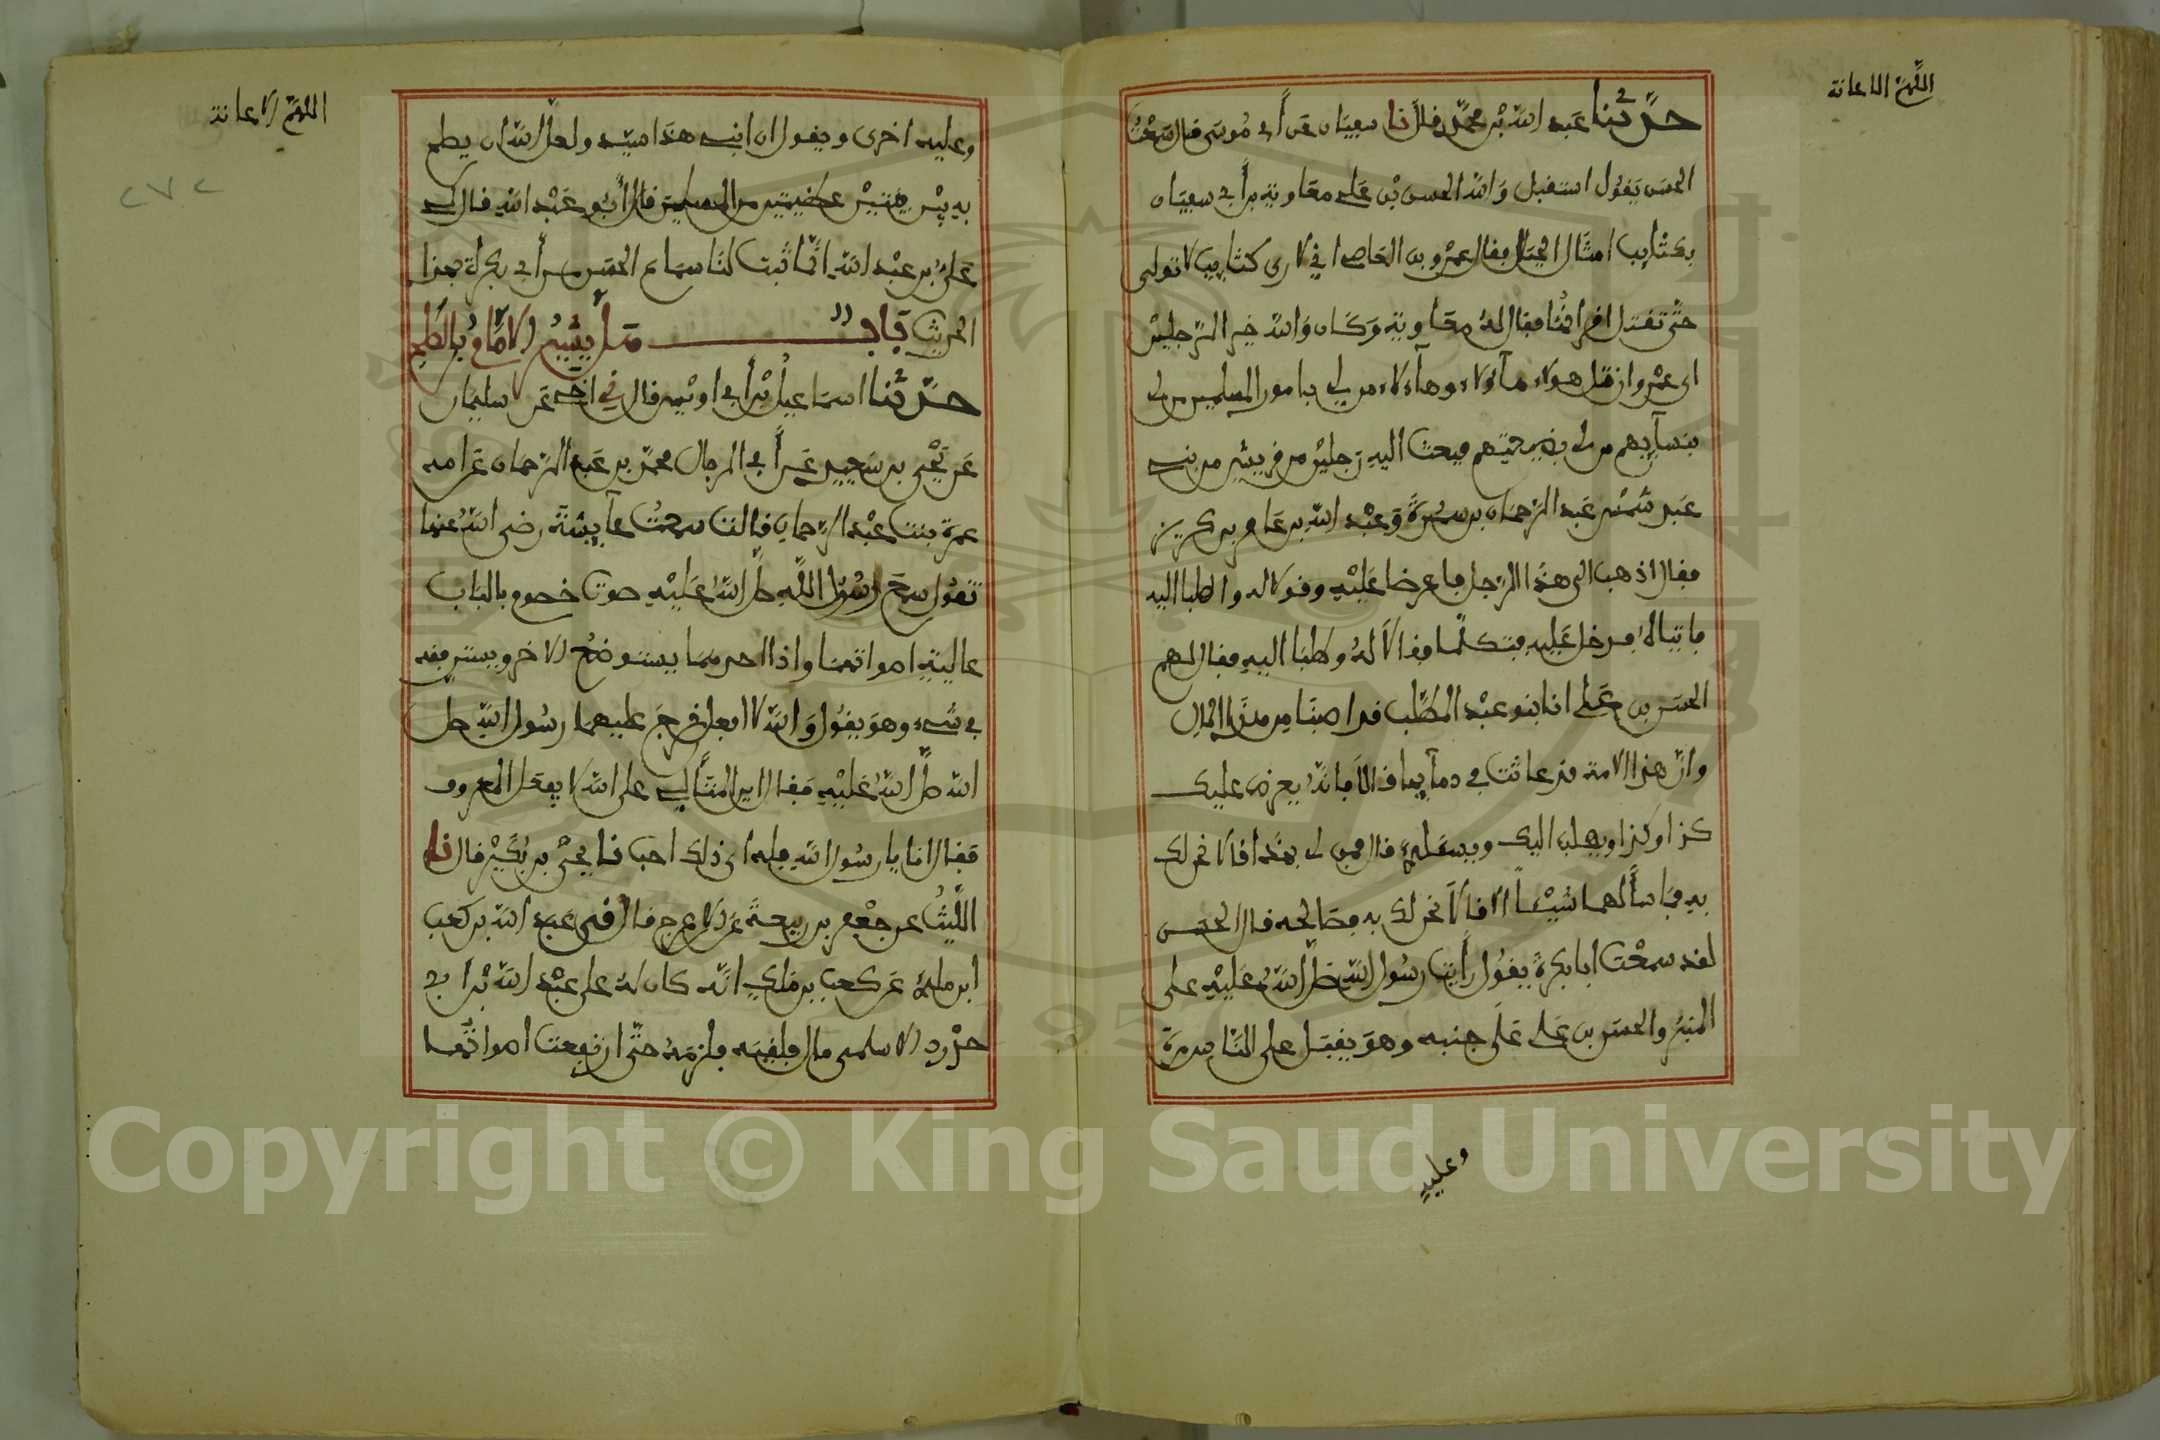 اللهم الاعانة
حدثنا عبد الله بن محمد قال نا سفيان عن أبي موسى قال سمعت
الحسن يقول استقبل والله الحسن بن علي معاوية بن أبي سفيان
بكتايب امثال الجبال فقال عمرو بن العاصي اني لارى كتايب لا تولى
حتى تقتل اقرانها فقال له معاوية وكان والله خير الرجلين
اي عمرو ان قتل هؤلاء هآولاء وهآءلاء من لي بامور المسلمين من لي
بنسآيهم من لي بضيعتهم فبعث اليه رجلين من قريش من بني
عبد شمس عبد الرحمان بن سمرة وعبد الله بن عامر بن كريز
فقال اذهبا الى هذا الرجل فاعرضا عليه وقولا له واطلبا اليه
فاتياه فدخلا عليه فتكلما وقالا له وطلبا اليه فقال لهم
الحسن بن علي انا بنو عبد المطلب قد اصبنا من هذا المال
وان هذه الامة قد عاثت في دمآيها قالا فانه يعرض عليك
كذا وكذا ويطلب اليك ويسئلك قال فمن لي بهذا قالا نحن لك
به فما سألهما شيئا الا قالا نحن لك به فصالحه قال الحسن
لقد سمعت ابا بكرة يقول رأيت رسول الله صلى الله عليه على
المنبر والحسن بن علي على جنبه وهو يقبل على الناس مرة
وعليه
اللهم الاعانة
٢٧٢
وعليه اخرى ويقول ان ابني هذا سيد ولعل الله ان يصلح
به بين فئتين عظيمتين من المسلمين قال أبو عبد الله قال لي
علي بن عبد الله انما ثبت لنا سماع الحسن من أبي بكرة بهذا
الحديث باب هل يشير الامام بالصلح
حدثنا اسماعيل بن أبي اويس قال ني اخي عن سليمان
عن يحيى بن سعيد عن أبي الرجال محمد بن عبد الرحمان عن امه
عمرة بنت عبد الرحمان قالت سمعت عآيشة رضي الله عنها
تقول سمع رسول الله صلى الله عليه صوت خصوم بالباب
عالية اصواتهما واذا احدهما يستوضع الاخر ويسترفقه
في شيء وهو يقول والله لا افعل فخرج عليهما رسول الله صلى
الله صلى الله عليه فقال اين المتألي على الله لا يفعل المعروف
فقال انا يا رسول الله فله اي ذلك احب نا يحيى بن بكير قال نا
الليث عن جعفر بن ربيعة عن الاعرج قال ني عبد الله بن كعب
ابن ملك عن كعب بن ملك انه كان له على عبد الله بن أبي
حدرد الاسلمي مال فلقيه فلزمه حتى ارتفعت اصواتهما
Copyright © King Saud University